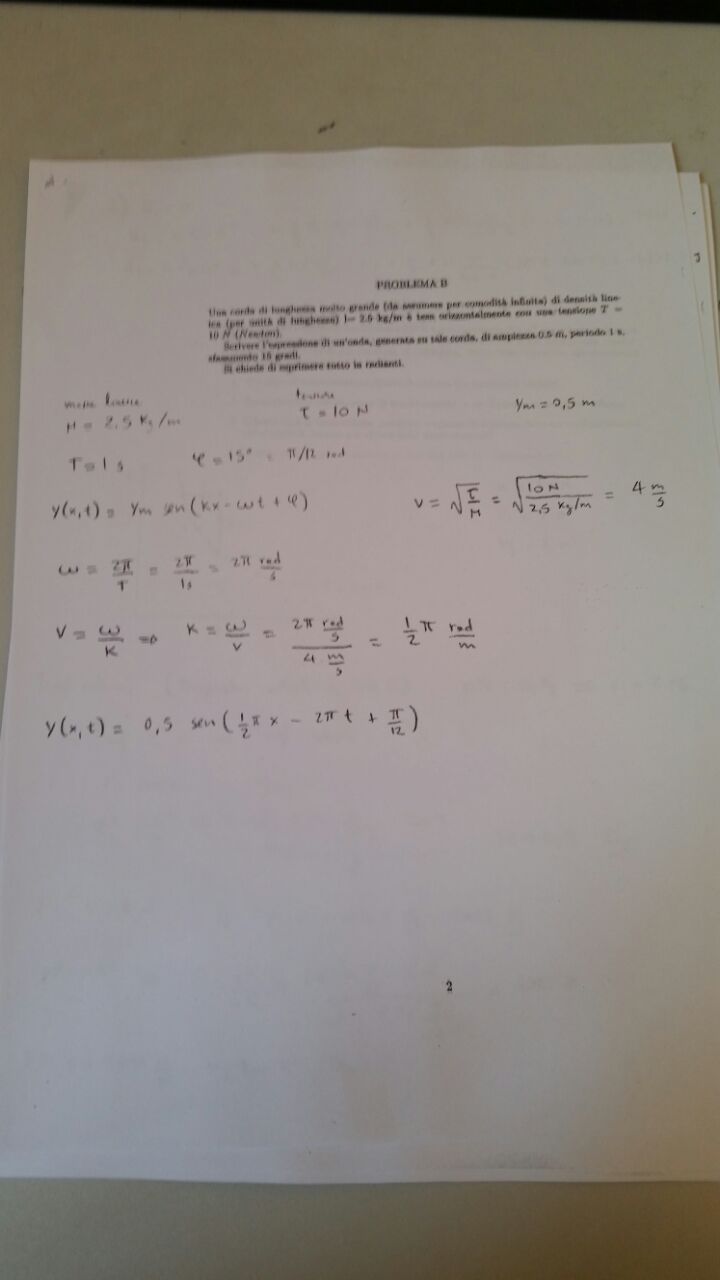 PROBLEMA B
Una corda di lunghezza molto grande (da assumere per comodità infinita) di densità line-
ica (per unità di lunghezza) l= 2.5 kg/m è tesa orizzontalmente con una tensione T =
10 N (Newton).
Scrivere l'espressione di un'onda, generata su tale corda, di ampiezza 0.5 m, periodo 1 s,
sfasamento 15 gradi.
Si chiede di esprimere tutto in radianti.
tensione
μ = 2,5 Kg/m τ = 10 N ym = 0,5 m
T = 1 s φ = 15° = π/12 rad
y(x,t) = ym sen(kx - ωt + φ) v = √(τ/μ) = √(10 N / 2,5 Kg/m) = 4 m/s
ω = 2π/T = 2π/1s = 2π rad/s
v = ω/k ⇒ k = ω/v = (2π rad/s)/(4 m/s) = 1/2 π rad/m
y(x,t) = 0,5 sen(1/2 π x - 2π t + π/12)
2